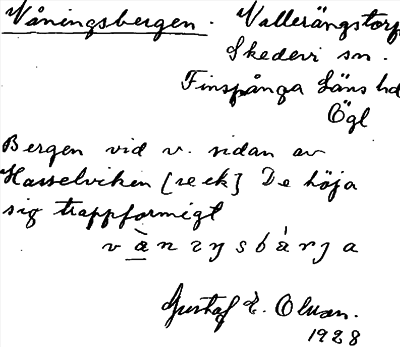 Våningsbergen. Vallerängstorp
Skedevi sn.
Finspånga läns hd
Ögl
Bergen vid v. sidan av
Hasselviken [se ek] De höja
sig trappformigt
vànıŋsbárja
Gustaf E. Olsson.
1928